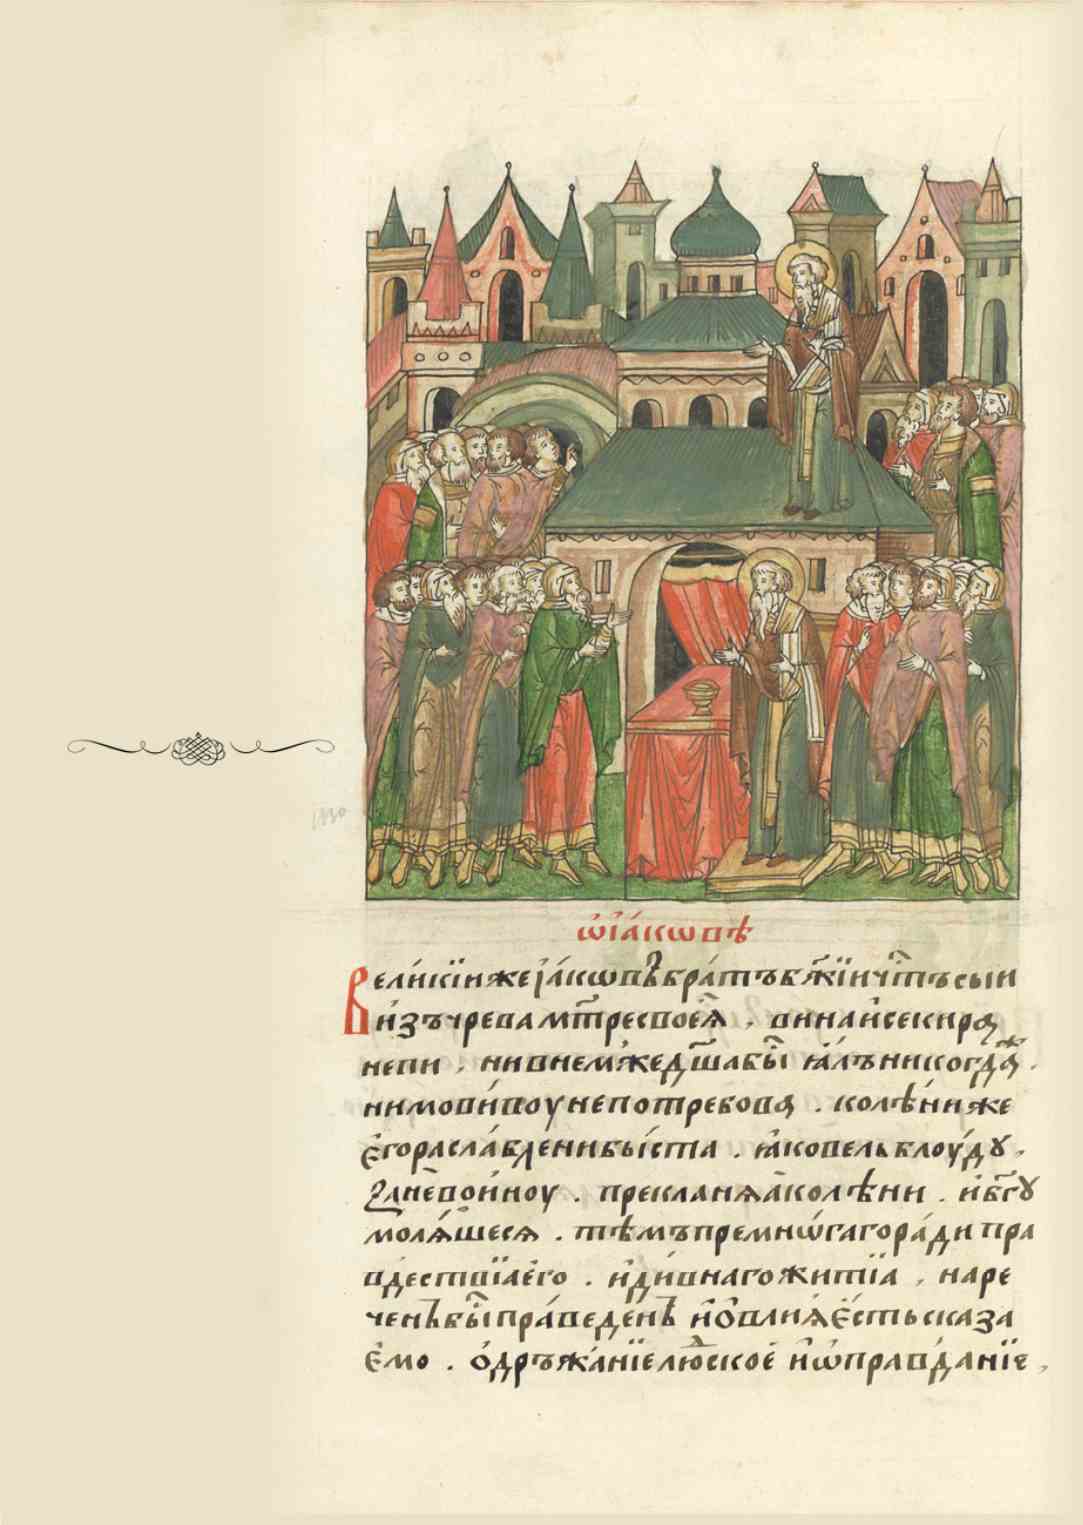 ѡ҆іа́кѡвѣ
Вели́кїи же І҆а́кѡвъ бра́тъ бж҃їи ч҃тъ сыи
и҆зъ чрева мт҃ре своеѧ̀ . вина и҆ секирꙋ
не пи . ни в нем же дш҃а бы̀ ꙗ҆лъ никогдаж .
ни мови́воу не потребова . колѣ́ни же
є҆го расла́блени бы́ста . ꙗ҆ко вельблоу́дꙋ ,
прекланѧ́ѧ колѣни . и҆ бг҃ꙋ
молѧ́щесѧ . тѣмъ премно́гаго ра́ди пра
вдествїа є҆го . и҆ ди́внаго житїа , наре
ченъ бы̀ пра́веденъ и҆ О҆влиѧ є҆сть сказа
є҆мо . ѻ҆дръжа́нїе лю́дское и҆ ѡ҆правда́нїе ,